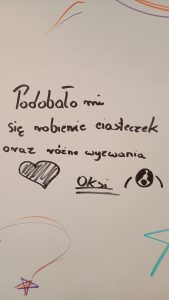 Podobało mi
się robienie ciasteczek
oraz różne wyzwania
Oksi